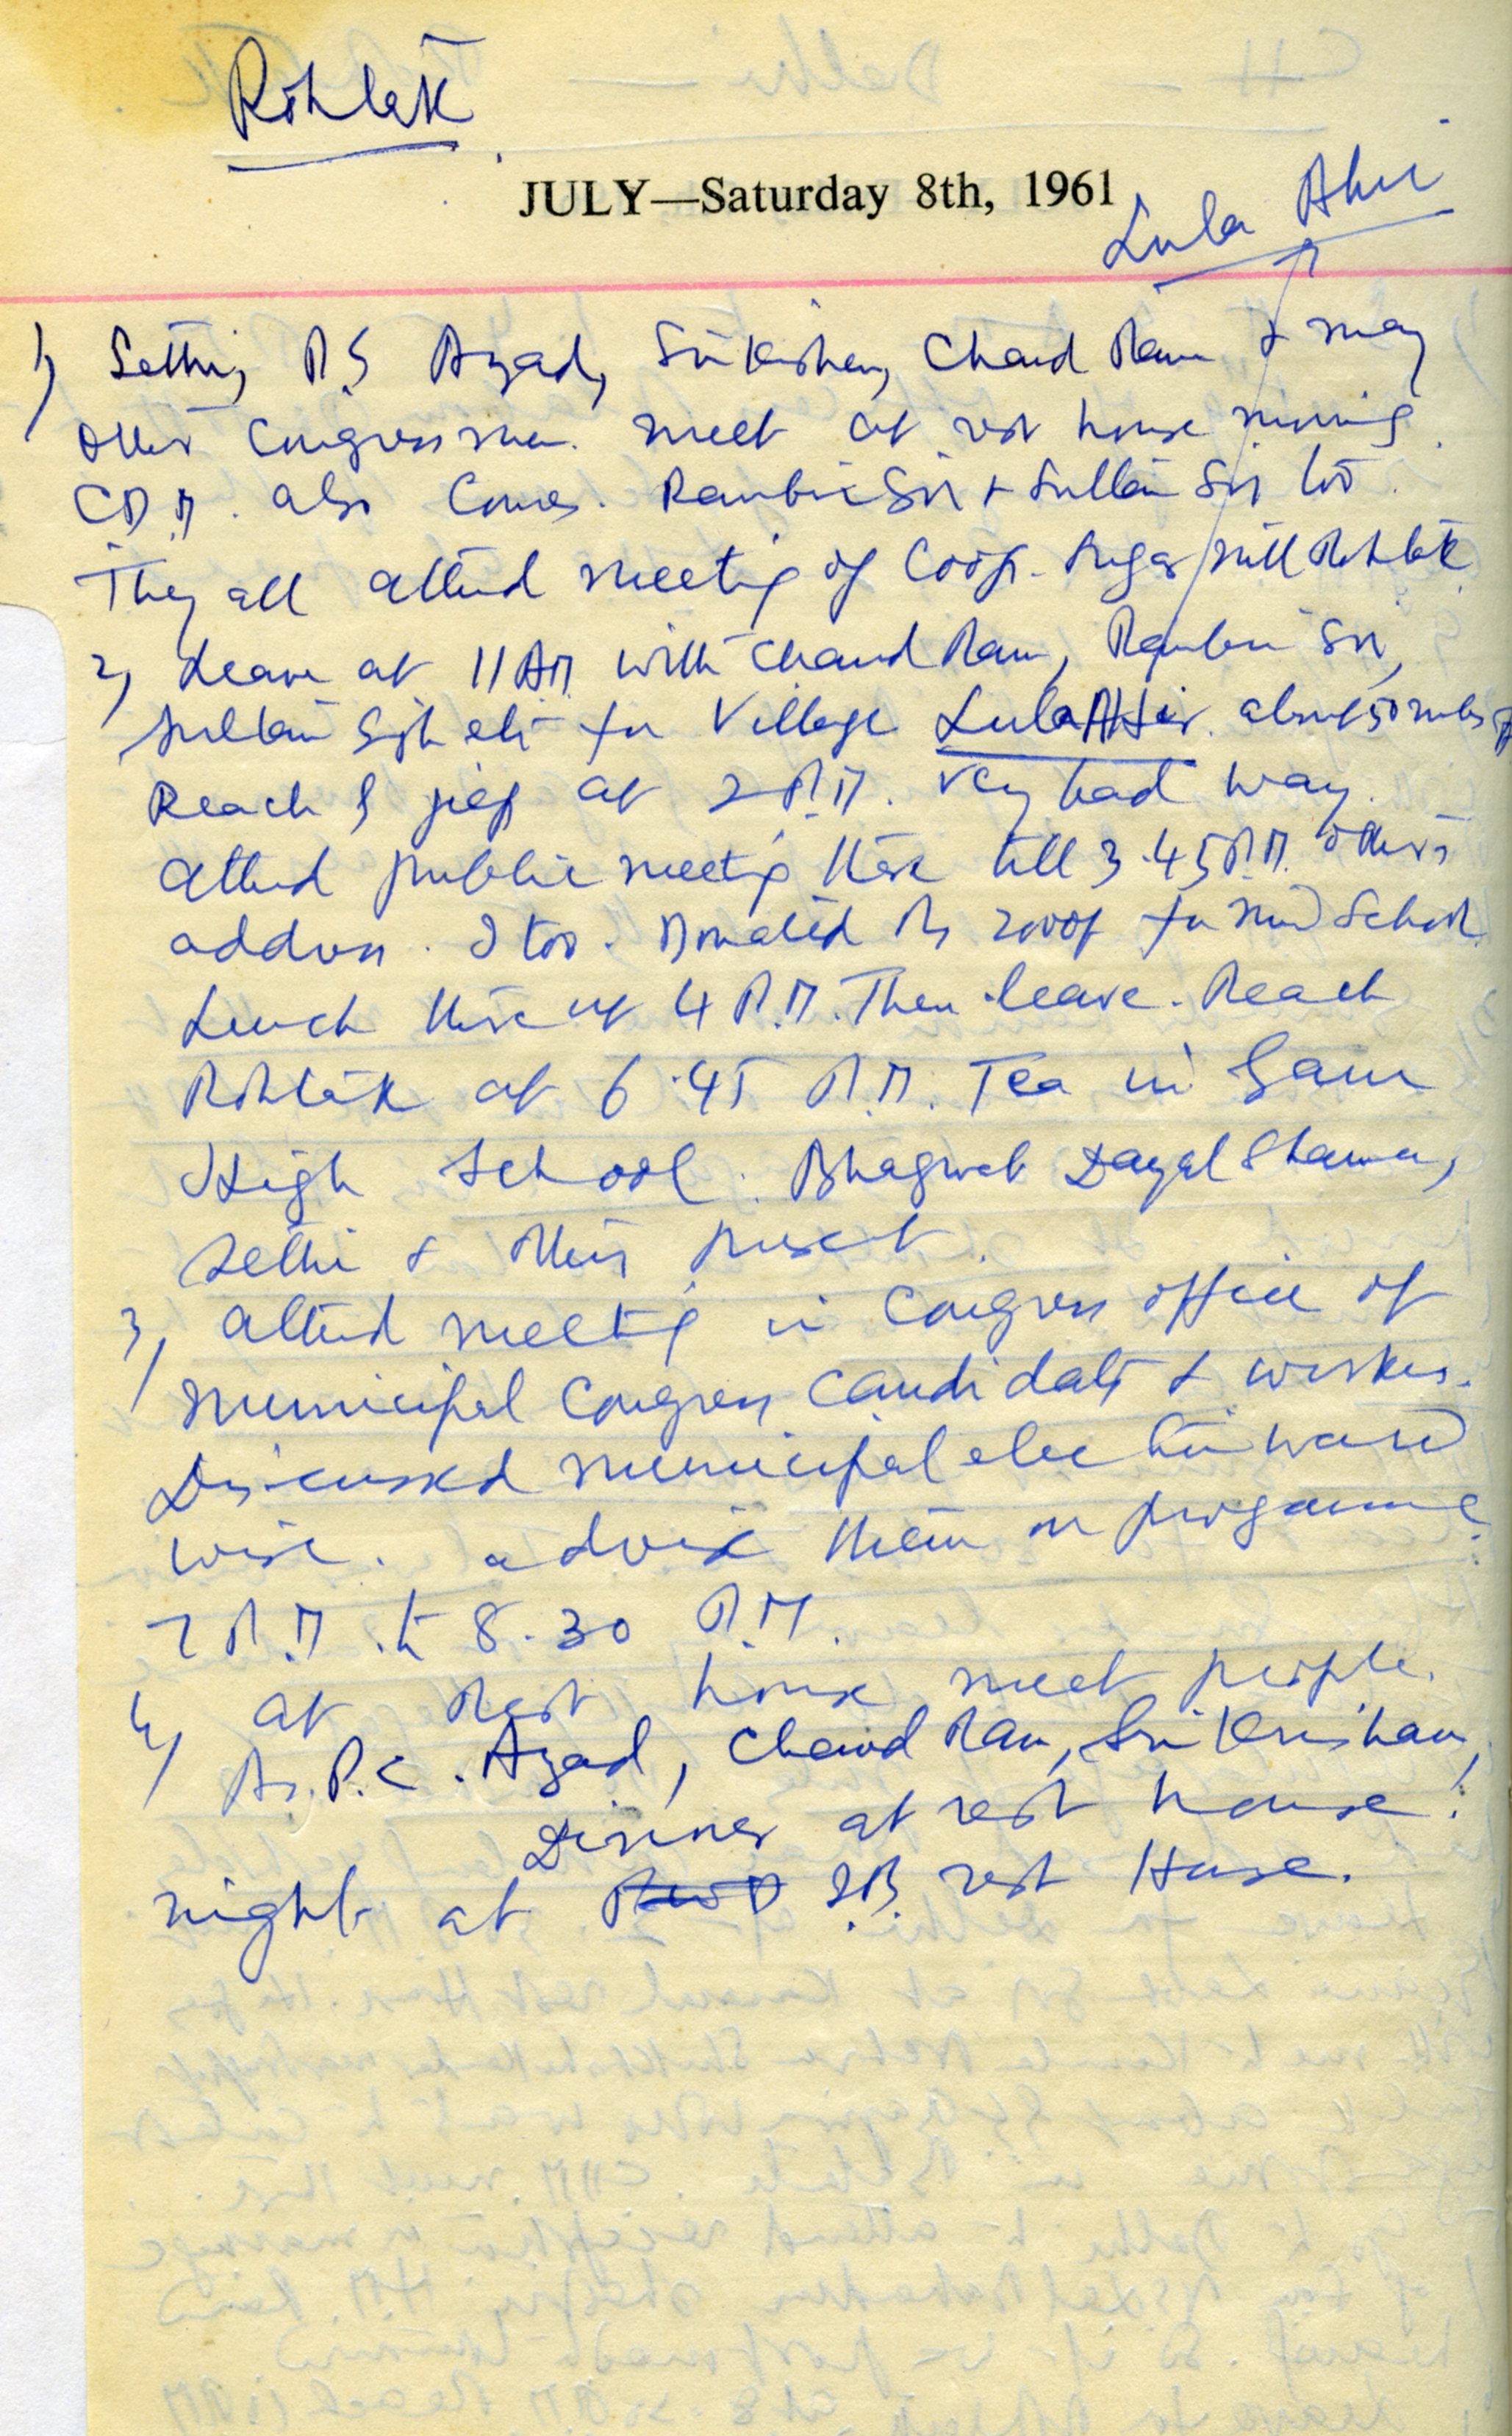 Rohtak
JULY—Saturday 8th, 1961
Lula Ahir
1) Sethi, R.S Azad, Sri Kishen, Chand Ram & many
other Congressmen. meet at rest house morning.
C.D.M. also comes. Ranbir Singh + Sultan Singh too.
They all attend meeting of Coop. Sugar Mill Rohtak.
2) Leave at 11 AM with Chand Ram, Ranbir Singh,
Sultan Singh etc for Village Lula Ahir. about 50 miles
Reach by jeep at 2 P.M. very bad way.
Attend public meeting there till 3.45 P.M. others
address. I too. Donated Rs 2000/ for Mid School.
Lunch there at 4 P.M. Then leave. Reach
Rohtak at 6.45 P.M. Tea in Gaur
High School. Bhagwat Dayal Sharma,
Sethi & others present.
3) Attend meeting in Congress office of
municipal Congress candidates & workers.
Discussed municipal election ward
wise. advise them on programme.
7 P.M. to 8.30 P.M.
4) at Rest house meet people.
Azad, Chand Ram, Sri Krishan,
Dinner at rest house.
night at PWD I.B. rest House.